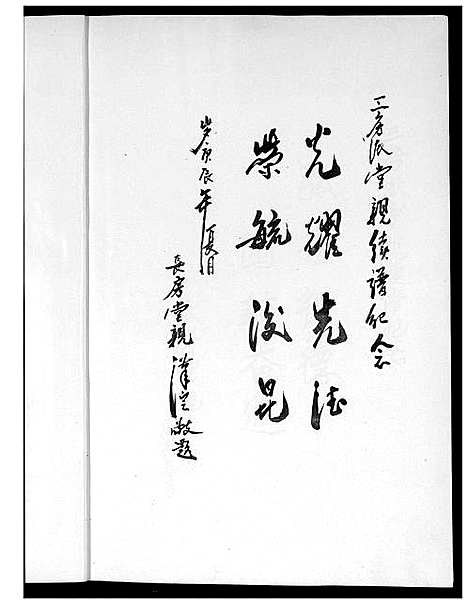 三房派堂親續譜紀念
光耀先德
榮毓後昆
歲庚辰年夏月
長房堂親漢定敬題